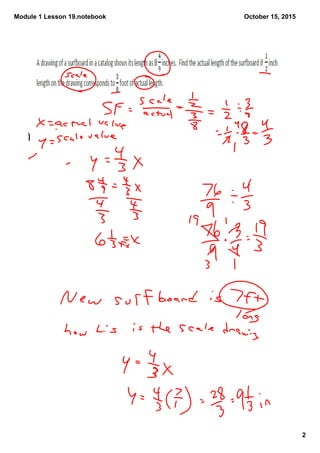 Module 1 Lesson 19.notebook
October 15, 2015
A drawing of a surfboard in a catalog shows its length as 8 4/9 inches. Find the actual length of the surfboard if 1/2 inch
length on the drawing corresponds to 3/8 foot of actual length.
scale
SF = scale/actual = (1/2)/(3/8) = 1/2 ÷ 3/8
= 1/2 · 8/3 = 4/3
x = actual value
y = scale value
1
y = 4/3 x
8 4/9 = 4/3 x
4/3 4/3
6 1/3 ft = x
76/9 ÷ 4/3
76/9 · 3/4 = 19/3
19 1
3 1
New surfboard is 7ft
long
how L is the scale drawing
y = 4/3 x
y = 4/3 (7/1) = 28/3 = 9 1/3 in
2